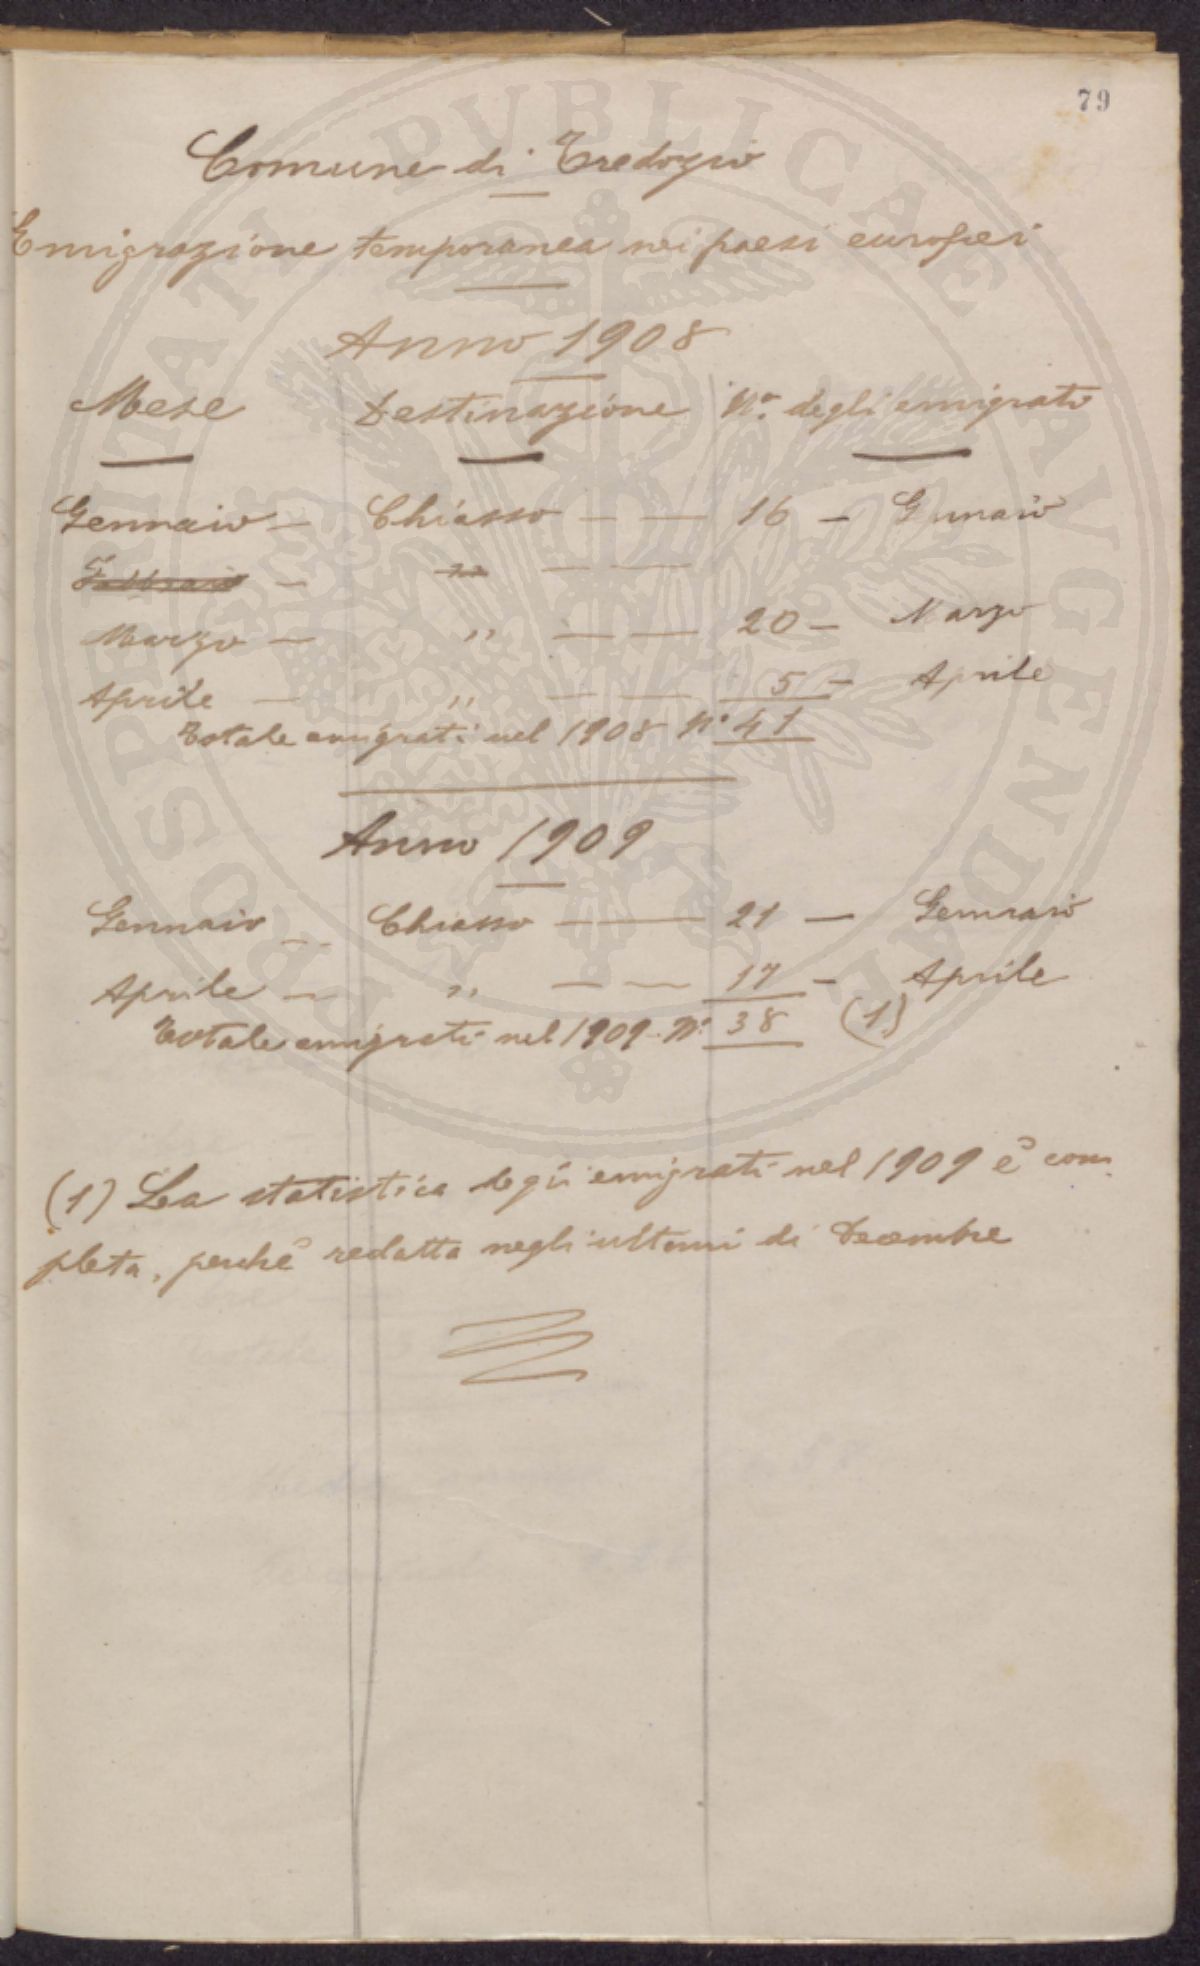 79
Comune di Tredozio
Emigrazione temporanea nei paesi europei
Anno 1908
Mese Destinazione N.º degli emigrati
Gennaio — Chiasso — — 16 — Gennaio
Febbraio — " — —
Marzo — " — — 20 — Marzo
Aprile — " — — 5 — Aprile
Totale emigrati nel 1908 Nº 41
Anno 1909
Gennaio — Chiasso — 21 — Gennaio
Aprile — " — — 17 — Aprile
Totale emigrati nel 1909. Nº 38 (1)
(1) La statistica degli emigrati nel 1909 è com
pleta, perchè redatta negli ultimi di Decembre
PROSPERITATI PVBLICAE AVGENDAE